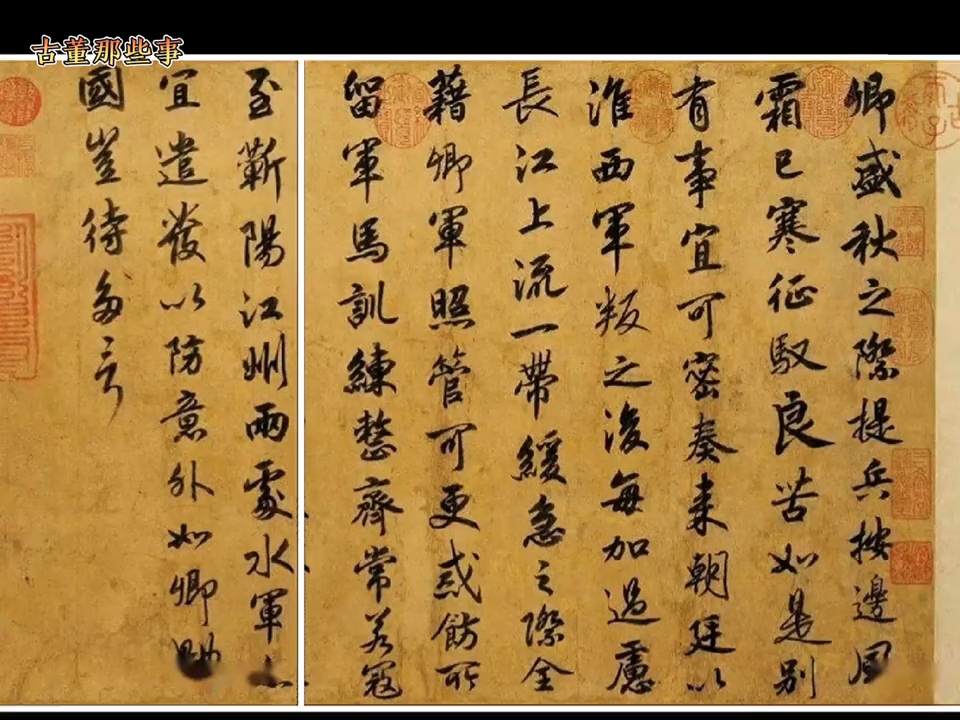 古董那些事
卿盛秋之際提兵按邊風
霜已寒征馭良苦如是別
有事宜可密奏來朝廷以
淮西軍叛之後每加過慮
長江上流一帶緩急之際全
藉卿軍照管可更戒飭所
留軍馬訓練整齊常若寇
至蘄陽江州兩處水軍亦
宜遣發以防意外如卿
國豈待多言